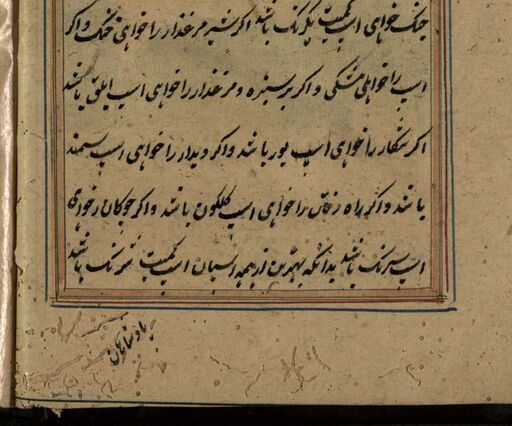 جنک خواهی اسپ کمیت یکرنک باشد اکر شیر مرغذار را خواهی خنک و اکر
اسپ را خواهی مشکی و اکر بر سبزه و مرغذار را خواهی اسپ ابلق باشد
اکر شکار را خواهی اسپ بور باشد و اکر دیدار را خواهی اسپ سمند
باشد و اکر راه رفتن را خواهی اسپ کلکون باشد و اکر چوکان را خواهی
اسپ سرنک باشد بدانکه بهترین از همه اسپان اسپ کمیت